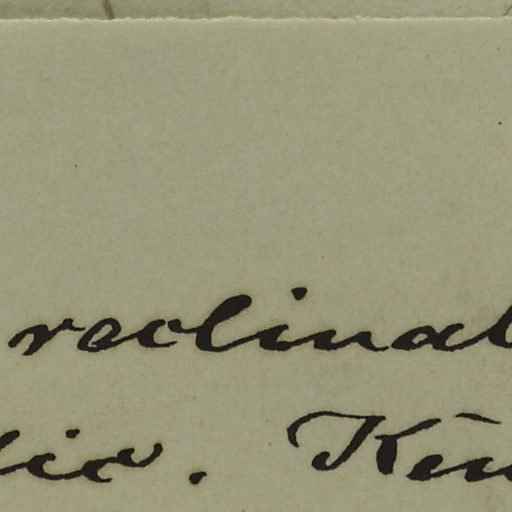 reclinat
lia. Ken